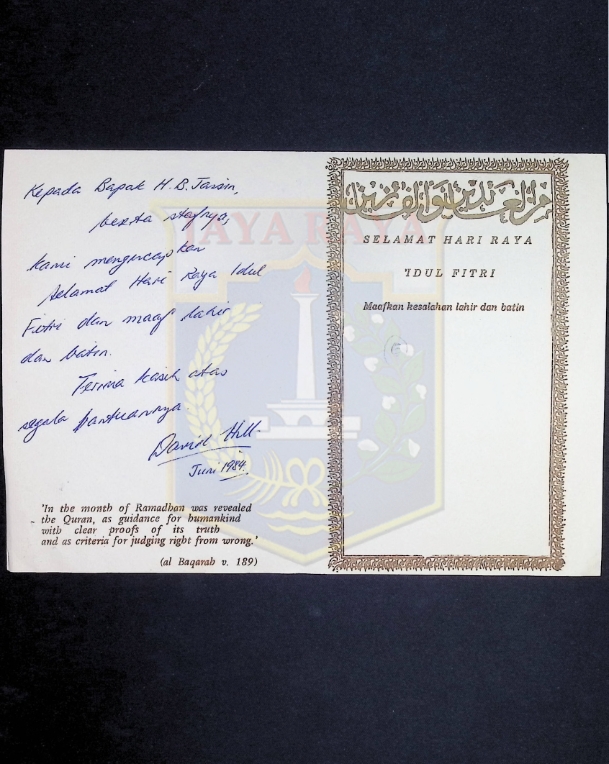 Kepada Bapak H.B. Jassin,
beserta stafnya,
kami mengucapkan
Selamat Hari Raya Idul
Fitri dan maaf lahir
dan batin.
Terima kasih atas
segala bantuannya.
David Hill
Juni 1984.
'In the month of Ramadhan was revealed
the Quran, as guidance for humankind
with clear proofs of its truth
and as criteria for judging right from wrong.'
(al Baqarah v. 189)
JAYA RAYA
من العائدين والفائزين
SELAMAT HARI RAYA
'IDUL FITRI
Maafkan kesalahan lahir dan batin